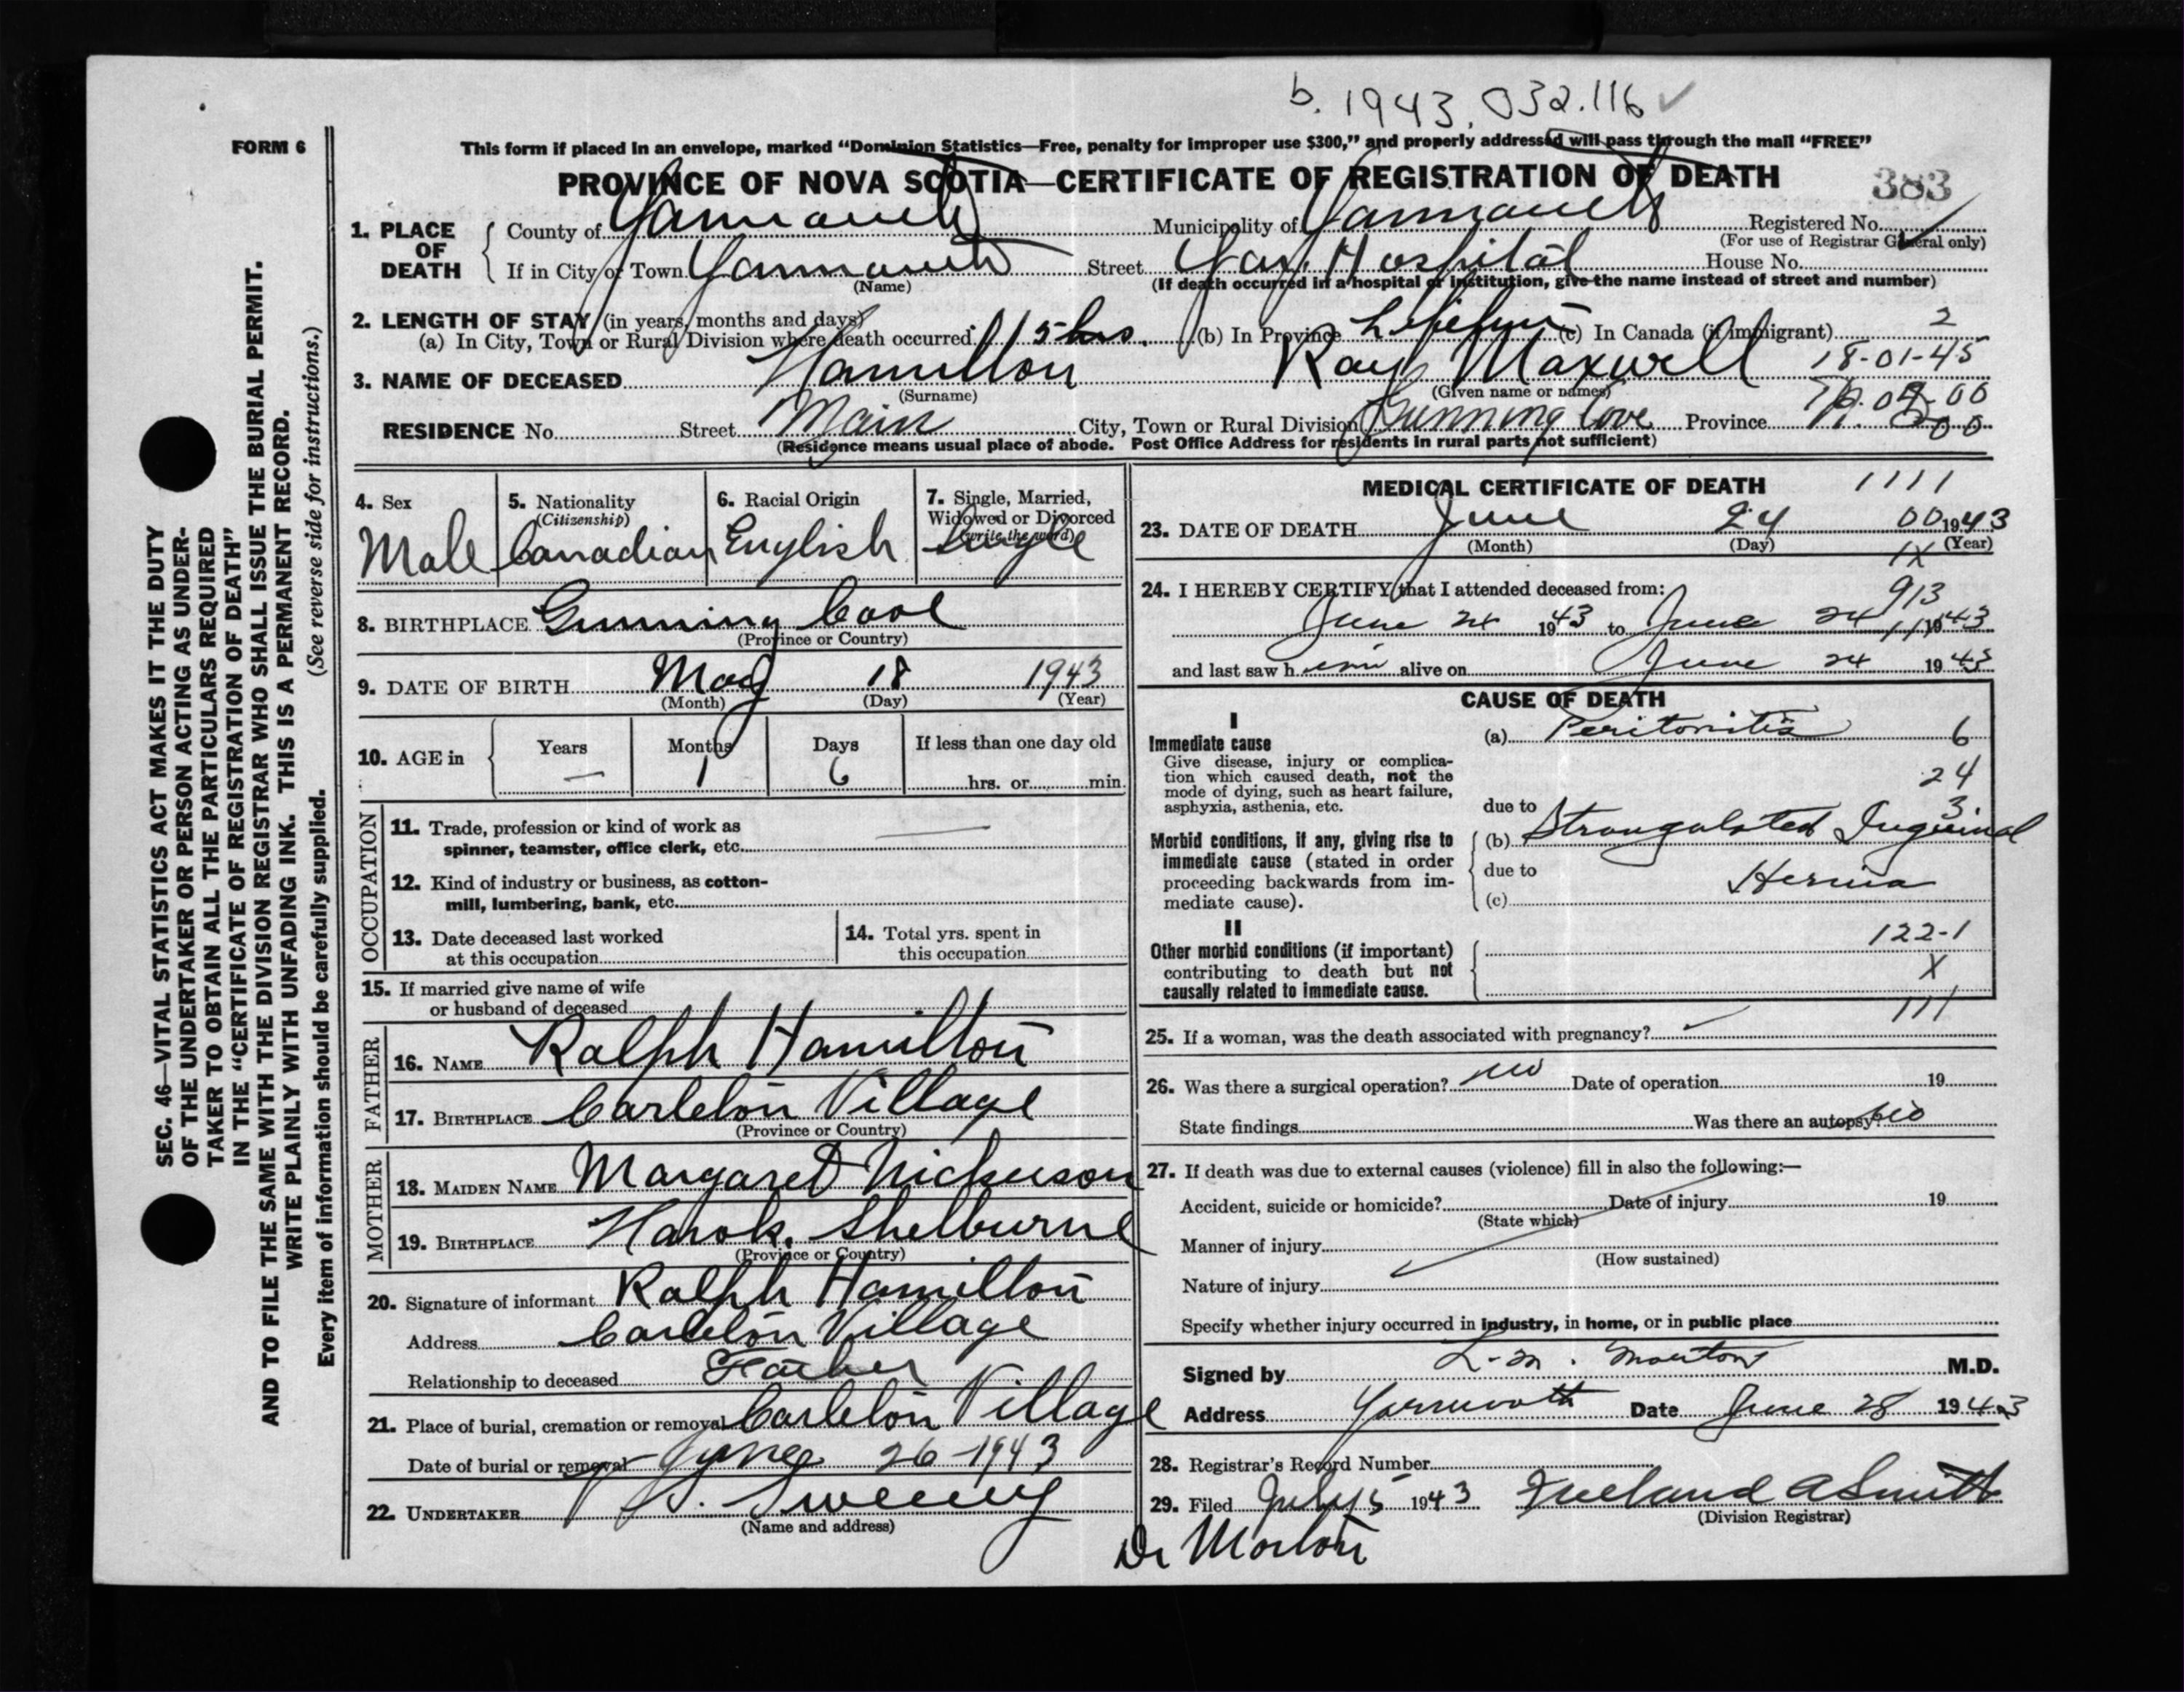 b. 1943. 032.116 ✓
FORM 6
This form if placed in an envelope, marked "Dominion Statistics—Free, penalty for improper use $300," and properly addressed will pass through the mail "FREE"
PROVINCE OF NOVA SCOTIA—CERTIFICATE OF REGISTRATION OF DEATH
383
1. PLACE OF DEATH
County of Yarmouth Municipality of Yarmouth Registered No.
(For use of Registrar General only)
If in City or Town Yarmouth Street Yar. Hospital House No.
(Name) (If death occurred in a hospital or institution, give the name instead of street and number)
2. LENGTH OF STAY (in years, months and days)
(a) In City, Town or Rural Division where death occurred 15 hrs. (b) In Province Lifetime (c) In Canada (if immigrant) 2
18-01-45
3. NAME OF DECEASED Hamilton Ray Maxwell
(Surname) (Given name or names)
RESIDENCE No. Street Main City, Town or Rural Division Gunning Cove Province
(Residence means usual place of abode. Post Office Address for residents in rural parts not sufficient)
4. Sex
Male
5. Nationality
(Citizenship)
Canadian
6. Racial Origin
English
7. Single, Married,
Widowed or Divorced
(write the word)
Single
8. BIRTHPLACE Gunning Cove
(Province or Country)
9. DATE OF BIRTH May 18 1943
(Month) (Day) (Year)
10. AGE in
Years Months Days If less than one day old
— 1 6 hrs. or min.
OCCUPATION
11. Trade, profession or kind of work as
spinner, teamster, office clerk, etc.
12. Kind of industry or business, as cotton-
mill, lumbering, bank, etc.
13. Date deceased last worked
at this occupation
14. Total yrs. spent in
this occupation
15. If married give name of wife
or husband of deceased
FATHER
16. NAME Ralph Hamilton
17. BIRTHPLACE Carleton Village
(Province or Country)
MOTHER
18. MAIDEN NAME Margaret Nickerson
19. BIRTHPLACE Shelburne
(Province or Country)
20. Signature of informant Ralph Hamilton
Address Carleton Village
Relationship to deceased Father
21. Place of burial, cremation or removal Carleton Village
Date of burial or removal June 26-1943
22. UNDERTAKER Sweeny
(Name and address)
MEDICAL CERTIFICATE OF DEATH 1111
23. DATE OF DEATH June 24 00 1943
(Month) (Day) (Year)
1X
24. I HEREBY CERTIFY that I attended deceased from:
913
June 24 1943 to June 24 1943
and last saw h im alive on June 24 1943
CAUSE OF DEATH
I
Immediate cause
Give disease, injury or complica-
tion which caused death, not the
mode of dying, such as heart failure,
asphyxia, asthenia, etc.
(a) Peritonitis 6
24
3.
due to
Morbid conditions, if any, giving rise to
immediate cause (stated in order
proceeding backwards from im-
mediate cause).
(b) Strangulated Inguinal
due to
Hernia
(c)
II
Other morbid conditions (if important)
contributing to death but not
causally related to immediate cause.
122-1
X
111
25. If a woman, was the death associated with pregnancy?
26. Was there a surgical operation? no Date of operation 19
State findings Was there an autopsy? no
27. If death was due to external causes (violence) fill in also the following:—
Accident, suicide or homicide? Date of injury 19
(State which)
Manner of injury
(How sustained)
Nature of injury
Specify whether injury occurred in industry, in home, or in public place
Signed by L. M. Morton M.D.
Address Yarmouth Date June 28 1943
28. Registrar's Record Number
29. Filed July 5 1943 A Smith
(Division Registrar)
Dr Morton
SEC. 46—VITAL STATISTICS ACT MAKES IT THE DUTY
OF THE UNDERTAKER OR PERSON ACTING AS UNDER-
TAKER TO OBTAIN ALL THE PARTICULARS REQUIRED
IN THE "CERTIFICATE OF REGISTRATION OF DEATH"
AND TO FILE THE SAME WITH THE DIVISION REGISTRAR WHO SHALL ISSUE THE BURIAL PERMIT.
WRITE PLAINLY WITH UNFADING INK. THIS IS A PERMANENT RECORD.
Every item of information should be carefully supplied. (See reverse side for instructions.)